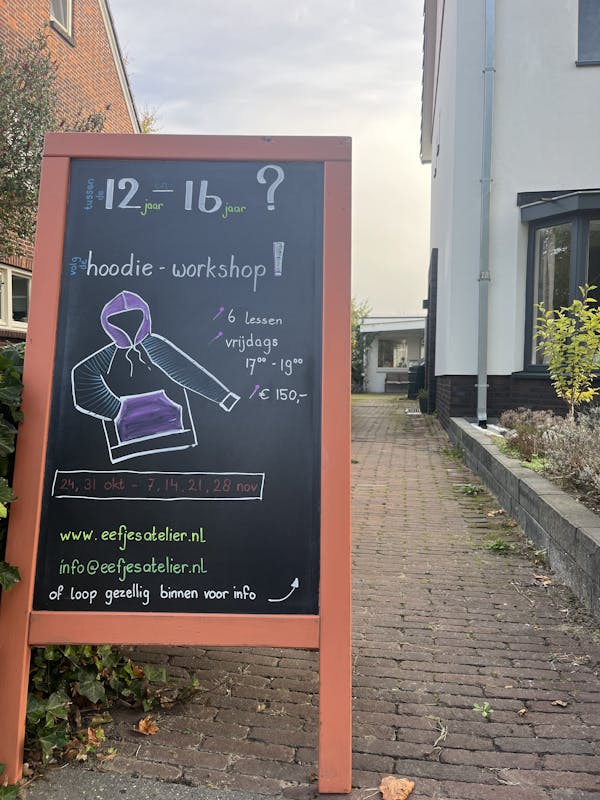 tussen de 12 jaar en 16 jaar ?
volg de hoodie - workshop!
6 lessen
vrijdags
17⁰⁰ - 19⁰⁰
€ 150,-
24, 31 okt - 7, 14, 21, 28 nov
www.eefjesatelier.nl
info@eefjesatelier.nl
of loop gezellig binnen voor info